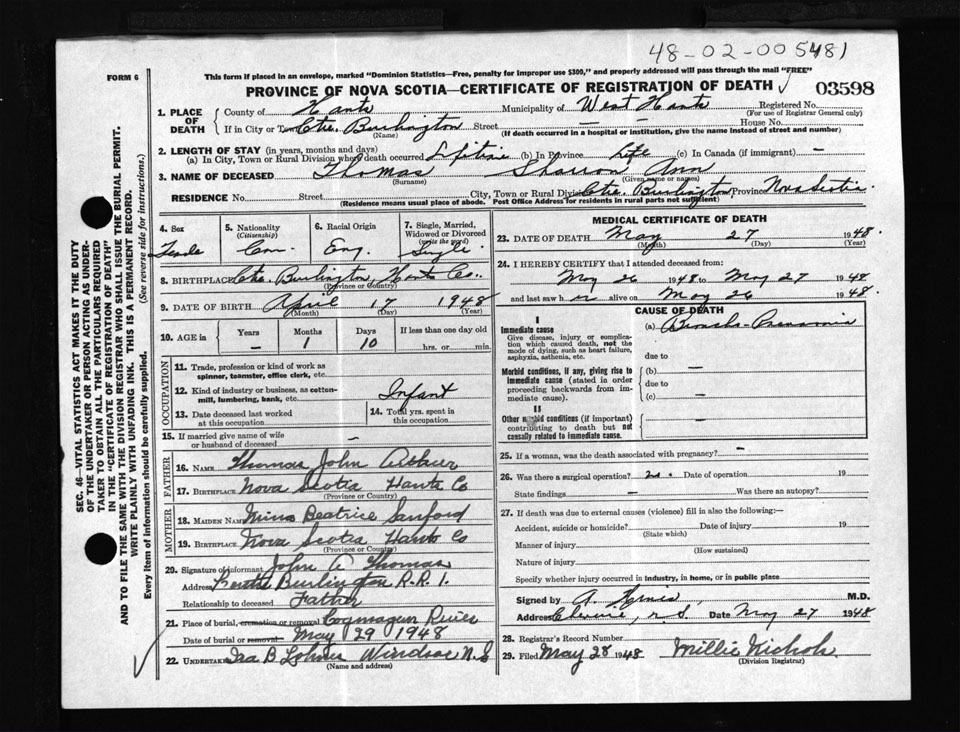 48-02-005481
FORM 6
This form if placed in an envelope, marked "Dominion Statistics—Free, penalty for improper use $300," and properly addressed will pass through the mail "FREE"
PROVINCE OF NOVA SCOTIA—CERTIFICATE OF REGISTRATION OF DEATH
03598
1. PLACE OF DEATH
County of Hants Municipality of West Hants Registered No.
(For use of Registrar General only)
If in City or Town Ctre. Burlington Street — — House No.
(Name) (If death occurred in a hospital or institution, give the name instead of street and number)
2. LENGTH OF STAY (in years, months and days)
(a) In City, Town or Rural Division where death occurred Lifetime (b) In Province Life (c) In Canada (if immigrant) —
3. NAME OF DECEASED Thomas Sharron Ann
(Surname) (Given name or names)
RESIDENCE No. Street City, Town or Rural Division Ctre. Burlington Province Nova Scotia.
(Residence means usual place of abode. Post Office Address for residents in rural parts not sufficient)
4. Sex
5. Nationality (Citizenship) Can
6. Racial Origin Eng.
7. Single, Married, Widowed or Divorced (write the word) Single
8. BIRTHPLACE Ctre. Burlington, Hants Co..
(Province or Country)
9. DATE OF BIRTH April 17 1948
(Month) (Day) (Year)
10. AGE in
Years Months Days If less than one day old
— 1 10 hrs. or min.
OCCUPATION
11. Trade, profession or kind of work as spinner, teamster, office clerk, etc.
12. Kind of industry or business, as cotton-mill, lumbering, bank, etc. Infant
13. Date deceased last worked at this occupation
14. Total yrs. spent in this occupation
15. If married give name of wife or husband of deceased —
FATHER
16. NAME Thomas John Arthur
17. BIRTHPLACE Nova Scotia Hants Co
(Province or Country)
MOTHER
18. MAIDEN NAME Mina Beatrice Sanford
19. BIRTHPLACE Nova Scotia Hants Co
(Province or Country)
20. Signature of informant John A Thomas
Address Centre Burlington R.R.1.
Relationship to deceased Father
21. Place of burial, cremation or removal Cogmagun River
Date of burial or removal May 29 1948
22. UNDERTAKER Windsor N.S
(Name and address)
MEDICAL CERTIFICATE OF DEATH
23. DATE OF DEATH May 27 1948.
(Month) (Day) (Year)
24. I HEREBY CERTIFY that I attended deceased from:
May 26 1948 to May 27 1948
and last saw h er alive on May 26 1948.
CAUSE OF DEATH
I
Immediate cause
Give disease, injury or complication which caused death, not the mode of dying, such as heart failure, asphyxia, asthenia, etc.
(a) Broncho-Pneumonia
due to
Morbid conditions, if any, giving rise to immediate cause (stated in order proceeding backwards from immediate cause).
(b) —
due to
(c) —
II
Other morbid conditions (if important) contributing to death but not causally related to immediate cause.
—
25. If a woman, was the death associated with pregnancy? —
26. Was there a surgical operation? no. Date of operation 19
State findings — Was there an autopsy?
27. If death was due to external causes (violence) fill in also the following:—
Accident, suicide or homicide? Date of injury 19
(State which)
Manner of injury
(How sustained)
Nature of injury
Specify whether injury occurred in industry, in home, or in public place
Signed by M.D.
Address N.S. Date May 27 1948
28. Registrar's Record Number
29. Filed May 28 1948 Millie Nichols
(Division Registrar)
SEC. 46—VITAL STATISTICS ACT MAKES IT THE DUTY
OF THE UNDERTAKER OR PERSON ACTING AS UNDER-
TAKER TO OBTAIN ALL THE PARTICULARS REQUIRED
IN THE "CERTIFICATE OF REGISTRATION OF DEATH"
AND TO FILE THE SAME WITH THE DIVISION REGISTRAR WHO SHALL ISSUE THE BURIAL PERMIT.
WRITE PLAINLY WITH UNFADING INK. THIS IS A PERMANENT RECORD.
Every item of information should be carefully supplied. (See reverse side for instructions.)